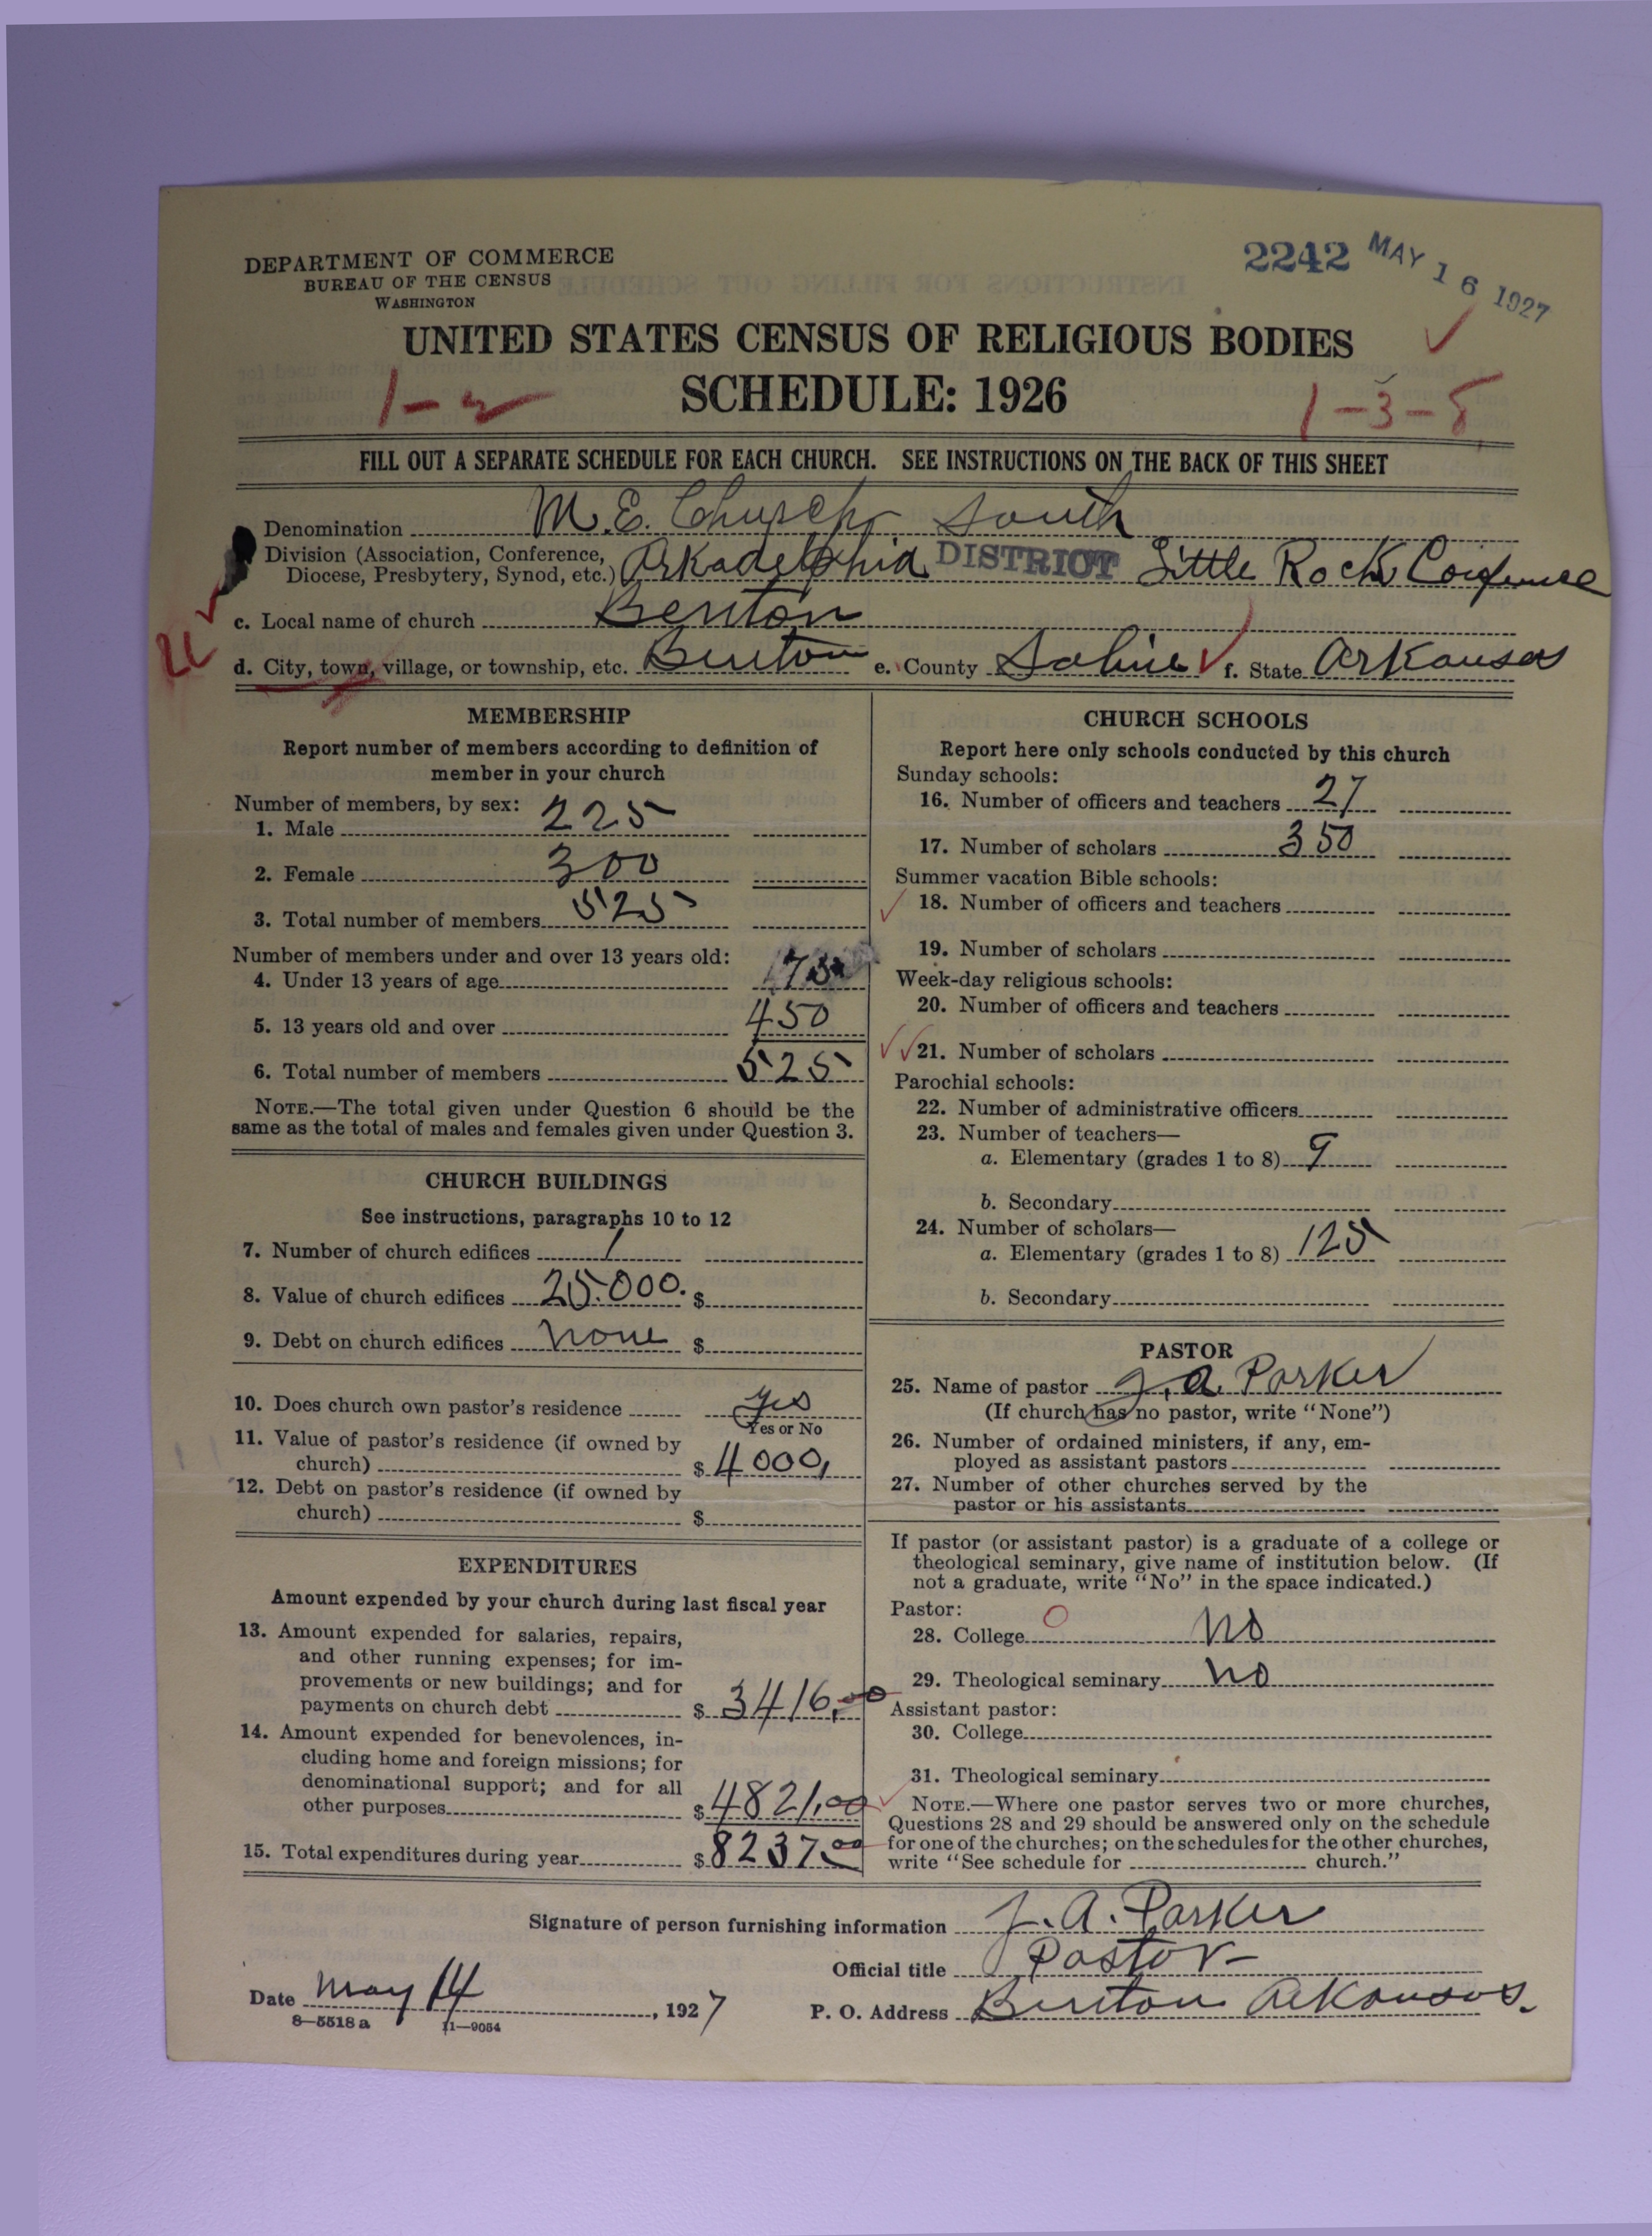 2242 MAY 16 1927
DEPARTMENT OF COMMERCE
BUREAU OF THE CENSUS
WASHINGTON
UNITED STATES CENSUS OF RELIGIOUS BODIES
SCHEDULE: 1926
1-2
1-3-8
FILL OUT A SEPARATE SCHEDULE FOR EACH CHURCH. SEE INSTRUCTIONS ON THE BACK OF THIS SHEET
Denomination M.E. Church, South
Division (Association, Conference, Diocese, Presbytery, Synod, etc.) Arkadelphia DISTRICT Little Rock Conference
c. Local name of church Benton
d. City, town, village, or township, etc. Benton e. County Saline f. State Arkansas
MEMBERSHIP
Report number of members according to definition of
member in your church
Number of members, by sex:
1. Male 225
2. Female 300
3. Total number of members 525
Number of members under and over 13 years old:
4. Under 13 years of age 75
5. 13 years old and over 450
6. Total number of members 525
NOTE.—The total given under Question 6 should be the
same as the total of males and females given under Question 3.
CHURCH BUILDINGS
See instructions, paragraphs 10 to 12
7. Number of church edifices 1
8. Value of church edifices 25.000. $
9. Debt on church edifices none $
10. Does church own pastor's residence yes
Yes or No
11. Value of pastor's residence (if owned by
church) $ 4000,
12. Debt on pastor's residence (if owned by
church) $
EXPENDITURES
Amount expended by your church during last fiscal year
13. Amount expended for salaries, repairs,
and other running expenses; for im-
provements or new buildings; and for
payments on church debt $ 3416.00
14. Amount expended for benevolences, in-
cluding home and foreign missions; for
denominational support; and for all
other purposes $ 4821.00
15. Total expenditures during year $ 8237.00
CHURCH SCHOOLS
Report here only schools conducted by this church
Sunday schools:
16. Number of officers and teachers 27
17. Number of scholars 350
Summer vacation Bible schools:
18. Number of officers and teachers
19. Number of scholars
Week-day religious schools:
20. Number of officers and teachers
21. Number of scholars
Parochial schools:
22. Number of administrative officers
23. Number of teachers—
a. Elementary (grades 1 to 8) 9
b. Secondary
24. Number of scholars—
a. Elementary (grades 1 to 8) 125
b. Secondary
PASTOR
25. Name of pastor J. A. Parker
(If church has no pastor, write "None")
26. Number of ordained ministers, if any, em-
ployed as assistant pastors
27. Number of other churches served by the
pastor or his assistants
If pastor (or assistant pastor) is a graduate of a college or
theological seminary, give name of institution below. (If
not a graduate, write "No" in the space indicated.)
Pastor:
28. College No
29. Theological seminary No
Assistant pastor:
30. College
31. Theological seminary
NOTE.—Where one pastor serves two or more churches,
Questions 28 and 29 should be answered only on the schedule
for one of the churches; on the schedules for the other churches,
write "See schedule for church."
Signature of person furnishing information J. A. Parker
Official title Pastor
Date May 14, 1927 P. O. Address Benton Arkansas.
8—5518 a 11—9054